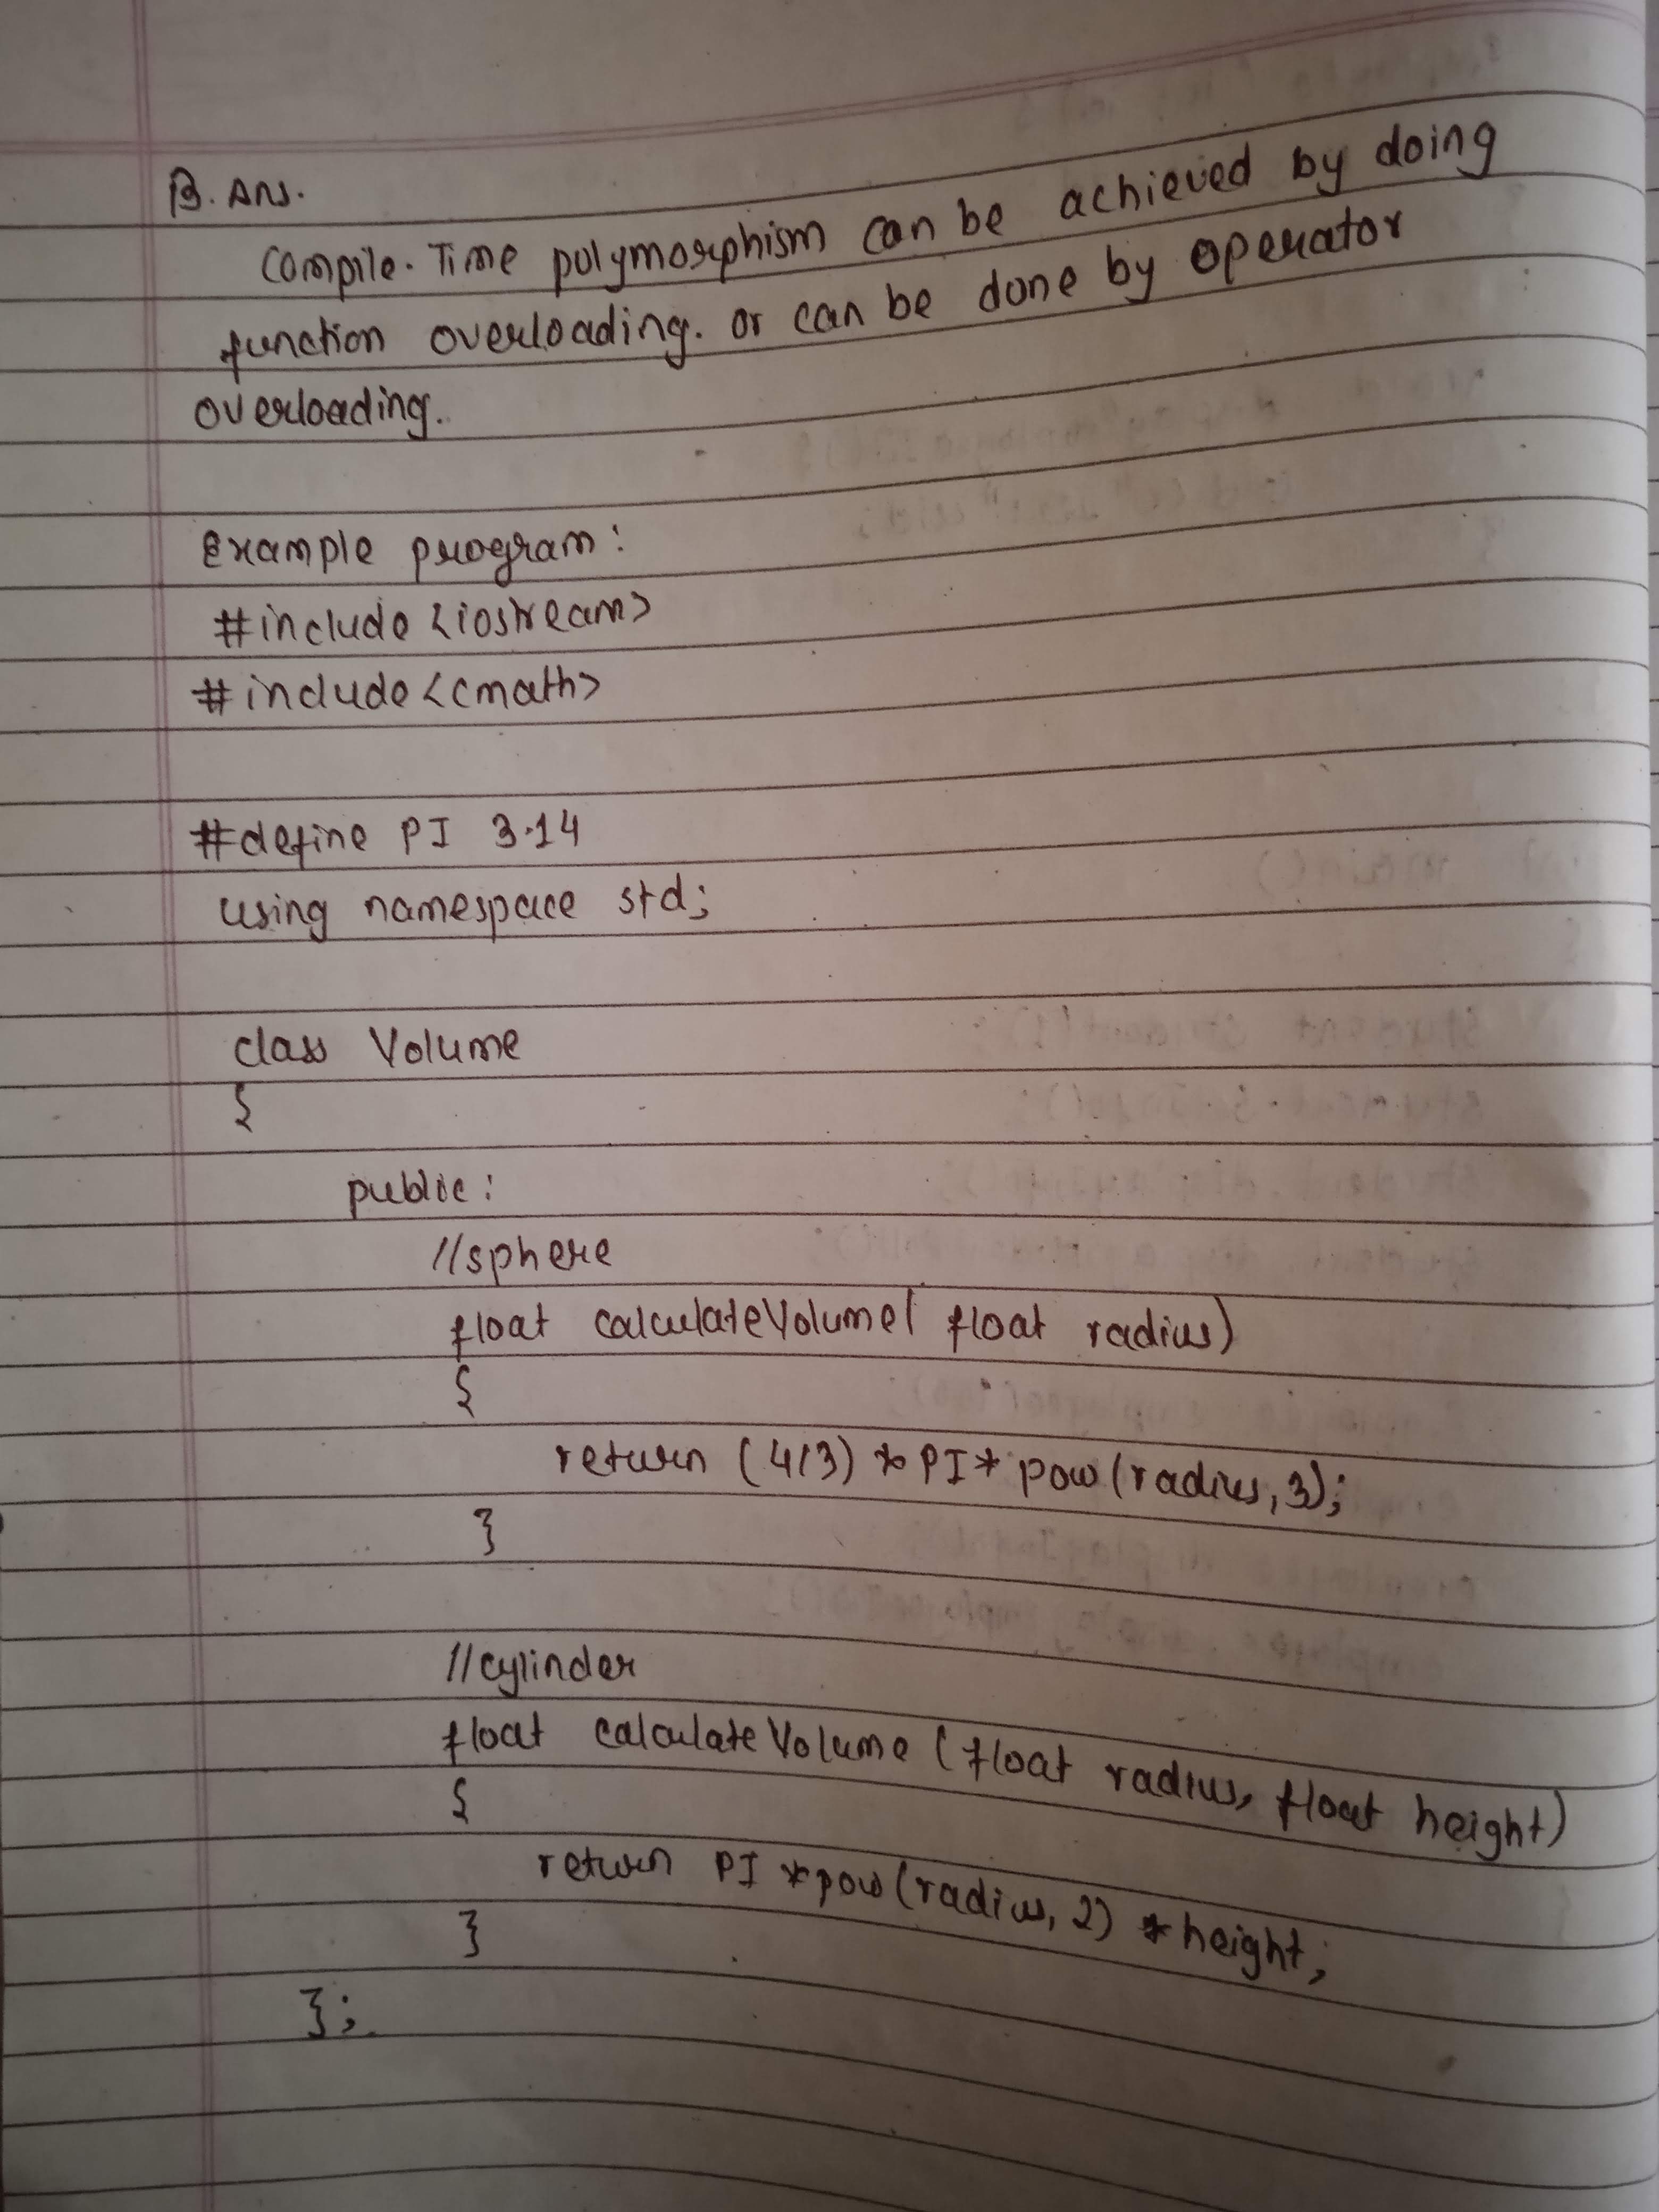 B. Ans.
Compile-Time polymorphism can be achieved by doing
function overloading. or can be done by operator
overloading.
Example program:
#include <iostream>
#include <cmath>
#define PI 3.14
using namespace std;
class Volume
{
public:
//sphere
float calculateVolume( float radius)
{
return (4/3) * PI * pow(radius,3);
}
//cylinder
float calculateVolume (float radius, float height)
{
return PI * pow(radius, 2) * height;
}
};